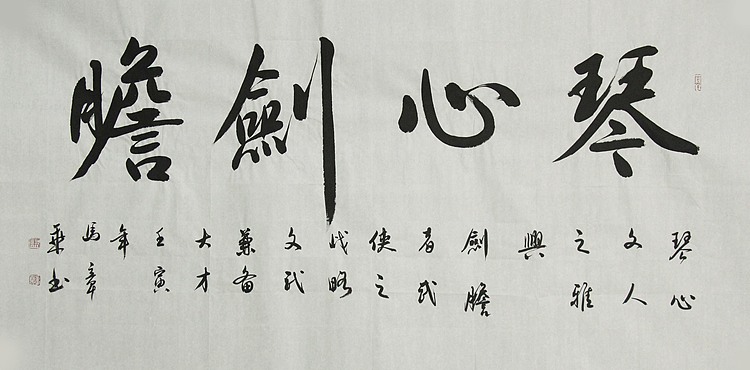 琴心劍膽
琴心
文人
之雅
興
劍膽
者武
俠之
战略
文武
兼备
大才
壬寅
年
馬章
乘书